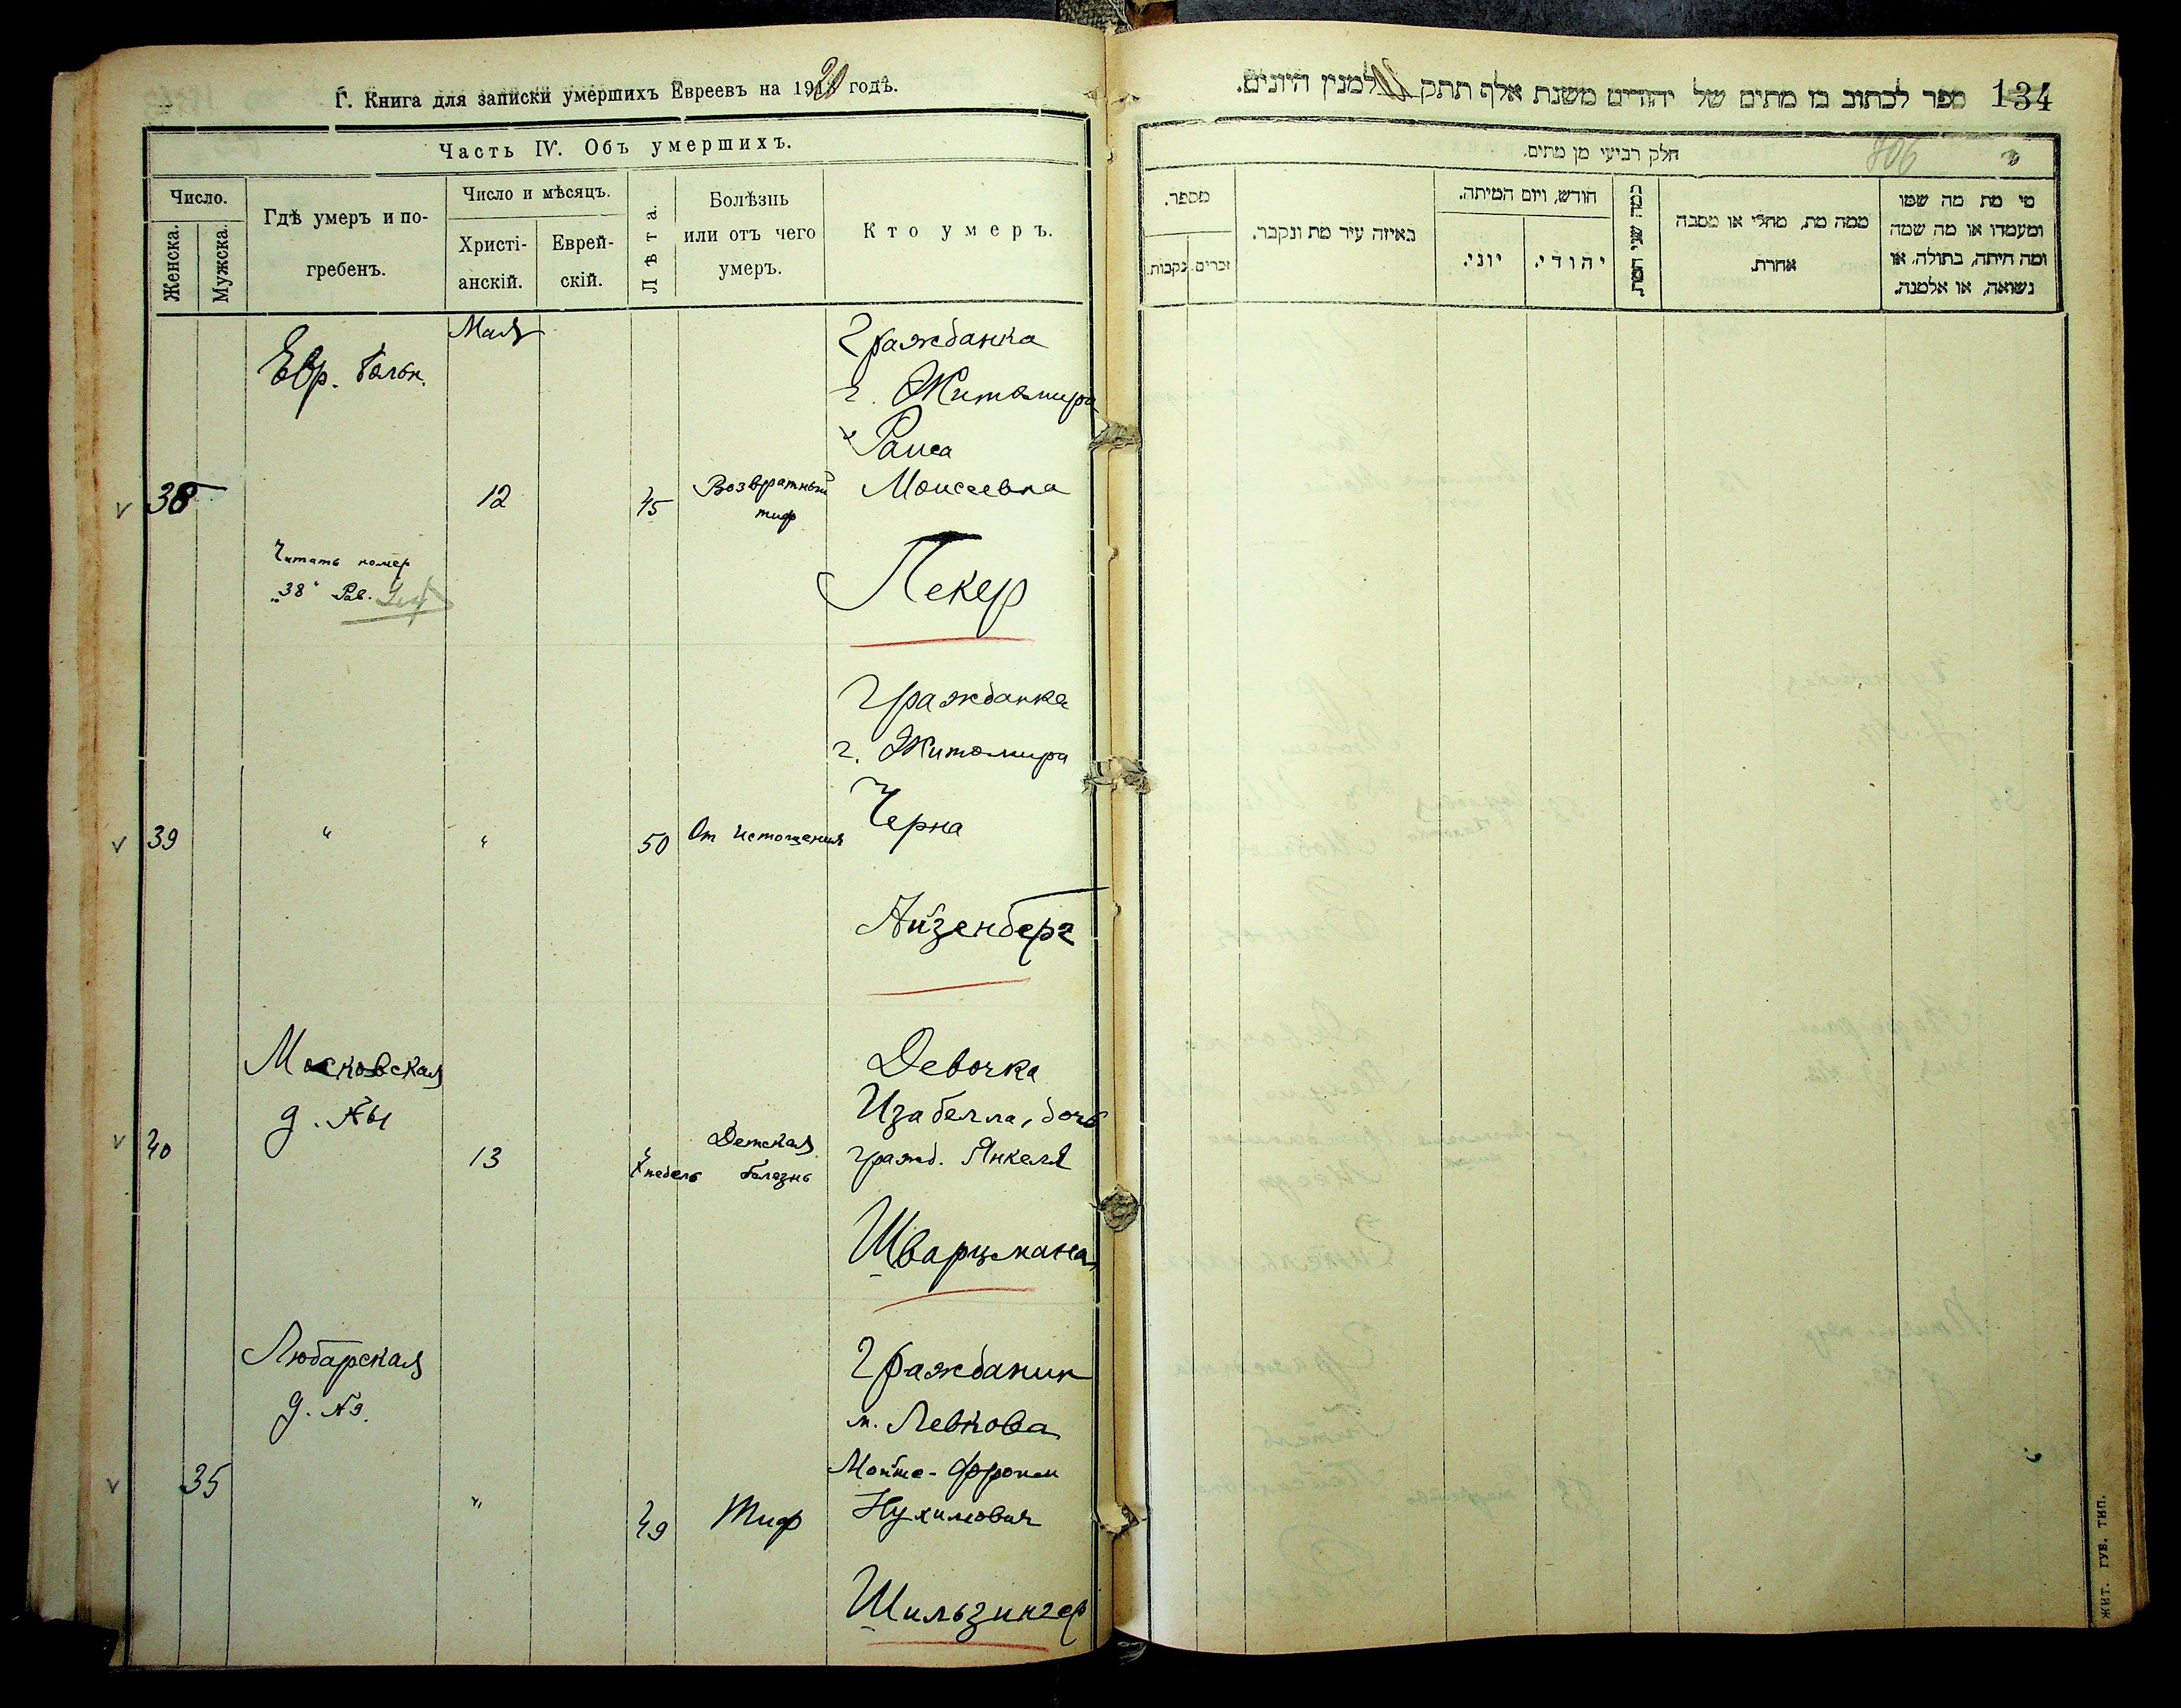 Г. Книга для записки умершихъ Евреевъ на 1920 годъ.
Часть IV. Объ умершихъ.
Число.
Женска.
Мужска.
Гдѣ умеръ и по-
гребенъ.
Число и мѣсяцъ.
Христі-
анскій.
Еврей-
скій.
Лѣта.
Болѣзнь
или отъ чего
умеръ.
Кто умеръ.
Мая
Евр. больн.
Гражданка
г. Житомира
Раиса
38
12
45
Возвратный
тиф
Моисеевна
Читать номер
„38“ Рав.
Пекер
Гражданка
г. Житомира
39
"
"
50
От истощения
Черна
Айзенберг
Московская
д. №
Девочка
Изабелла, дочь
40
13
недель
Детская
болезнь
гражд. Янкеля
Шварцмана
Любарская
д. №
Гражданин
м. Левкова
35
"
49
Тиф
Мойше-Фроим
Нухимович
Шильзингер
134
ספר לכתוב בו מתים של יהודים משנת אלף תתק למנין היונים.
806
חלק רביעי מן מתים.
מספר.
נקבות.
זכרים.
באיזה עיר מת ונקבר.
חודש, ויום המיתה.
יוני.
יהודי.
כמה שני המת.
ממה מת, מחלי או מסבה
אחרת.
מי מת מה שמו
ומעמדו או מה שמה
ומה היתה, בתולה, או
נשואה, או אלמנה.
ЖИТ. ГУБ. ТИП.